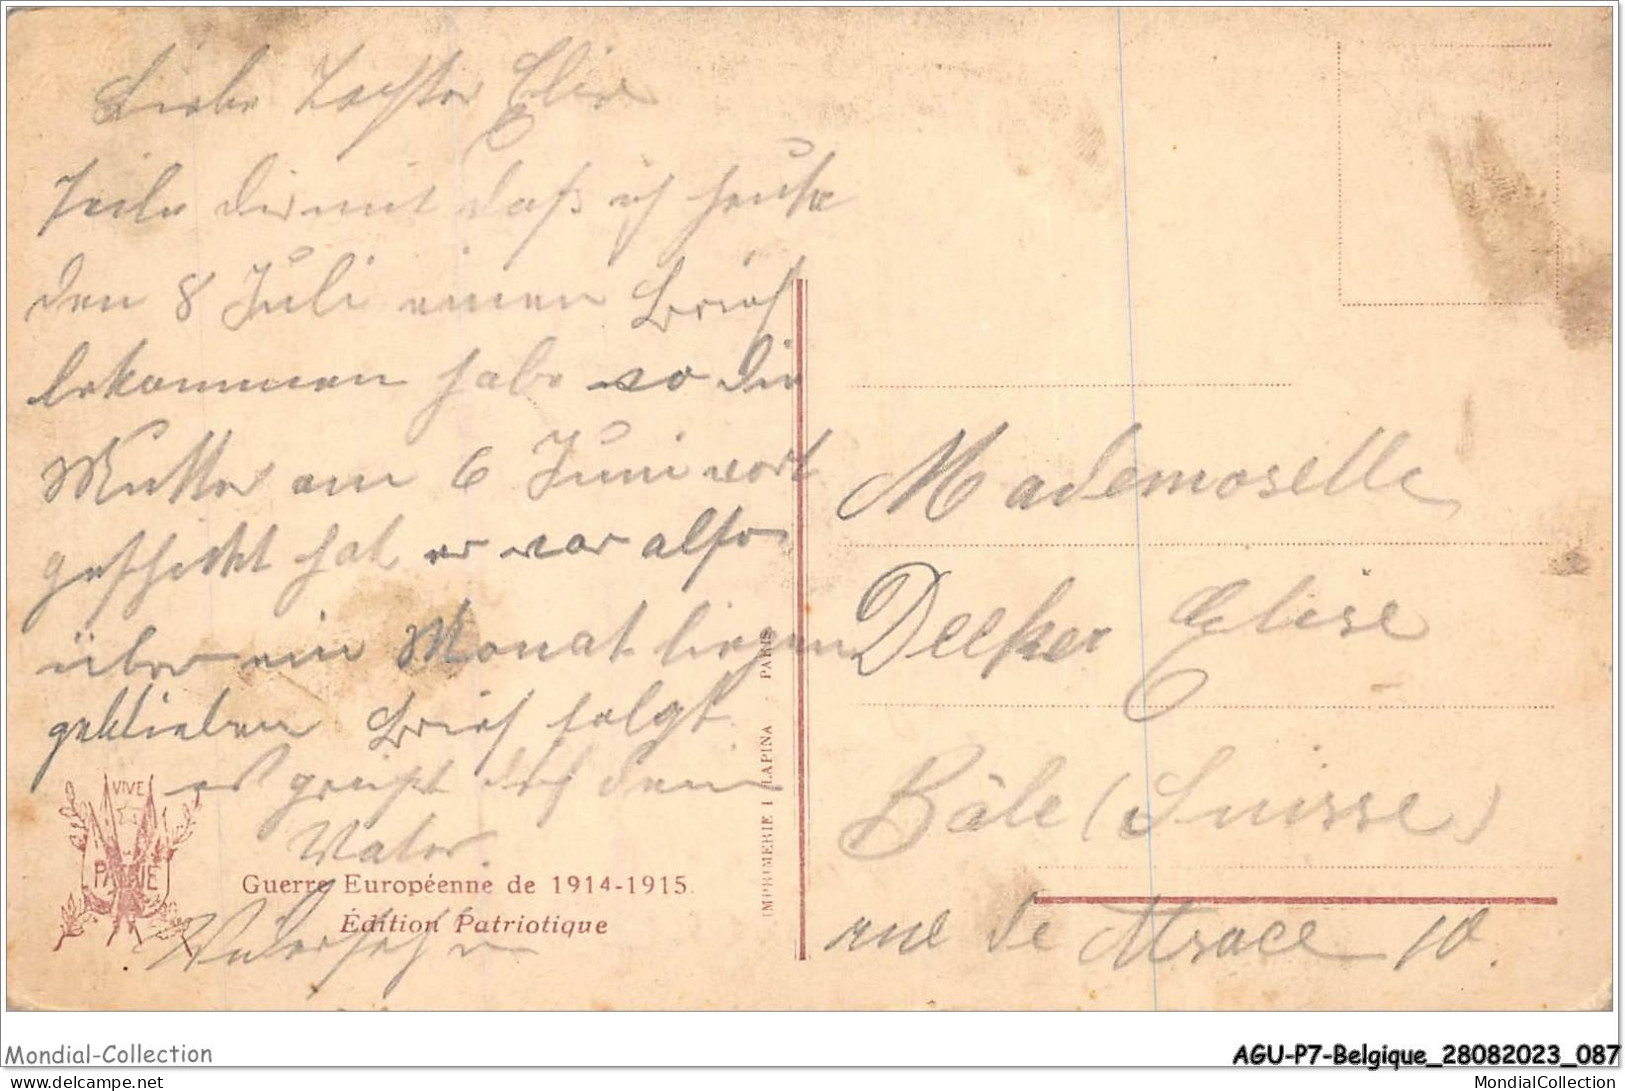 Liebe Tochter Elise
Teile dir mit daß ich heute
den 8 Juli einen Brief
bekommen habe so die
Mutter am 6 Juni vort
geschickt hat er war also
über ein Monat liegen
geblieben Brief folgt
es grüßt dich dein
Vater.
Wiedersehn
VIVE
PATRIE
Guerre Européenne de 1914-1915.
Édition Patriotique
IMPRIMERIE I LAPINA - PARIS
Mademoselle
Decker Elise
Bâle (Suisse)
rue de Alsace 10.
Mondial-Collection
AGU-P7-Belgique_28082023_087
www.delcampe.net
MondialCollection